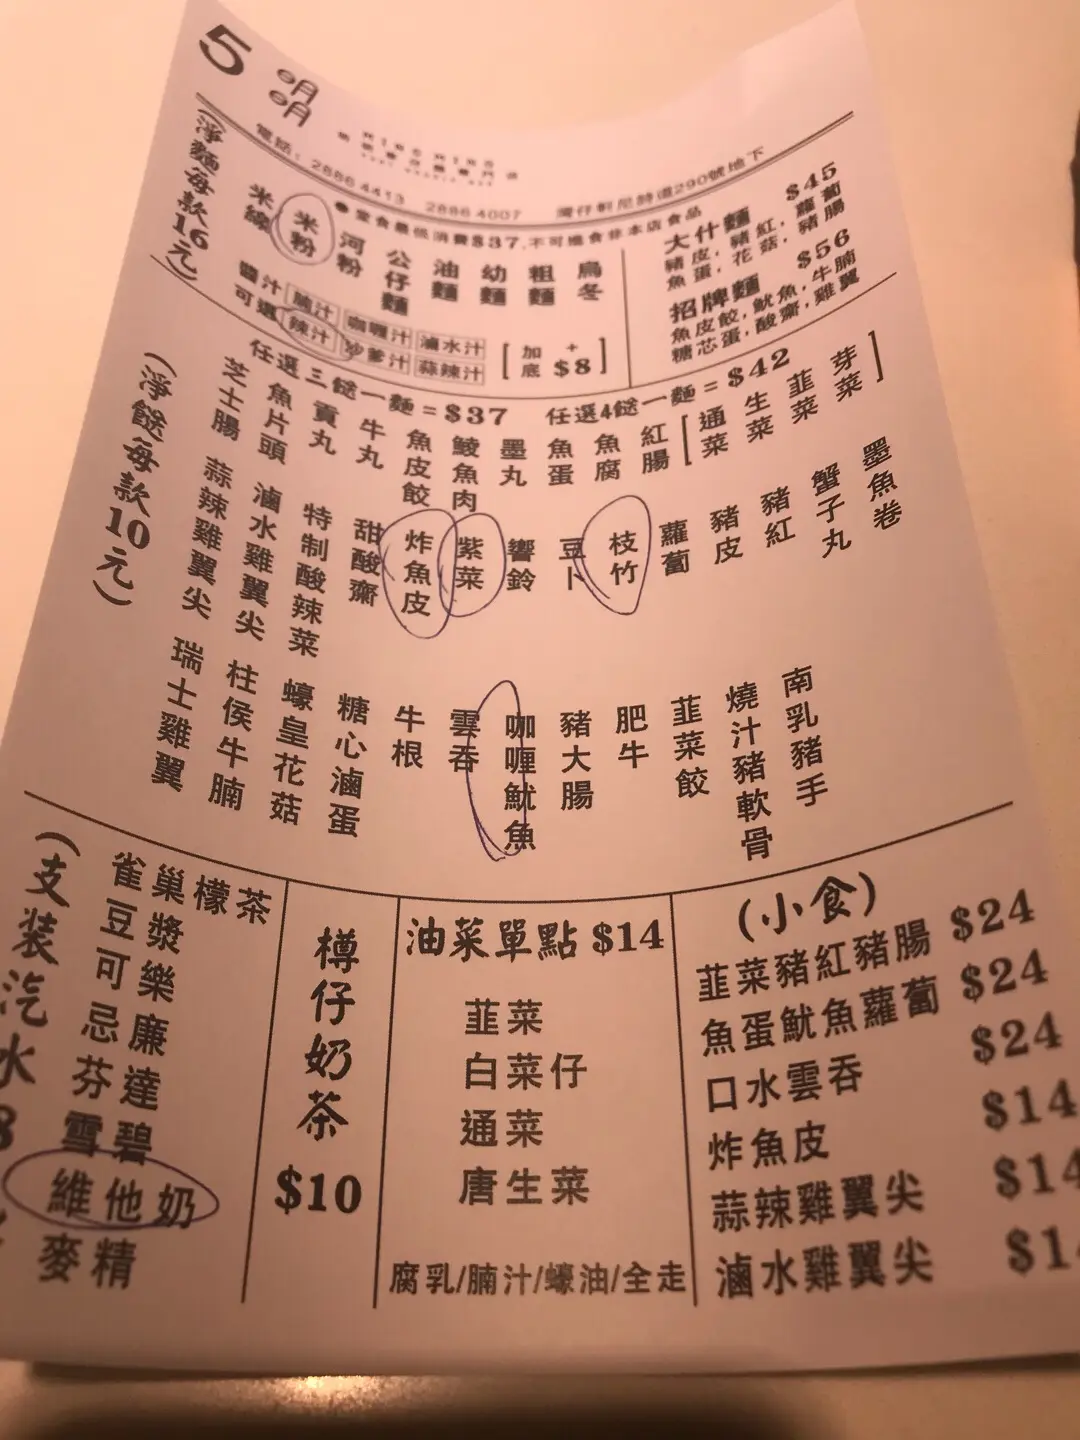 5
電話: 2886 4413 2886 4007 灣仔軒尼詩道290號地下
●堂食最低消費$37,不可進食非本店食品
(淨麵每款16元)
米線
米粉
河粉
公仔麵
油麵
幼麵
粗麵
烏冬
醬汁可選
腩汁 咖喱汁 滷水汁
辣汁 沙爹汁 蒜辣汁
[加底 +$8]
大什麵 $45
豬皮, 豬紅, 蘿蔔
魚蛋, 花菇, 豬腸
招牌麵 $56
魚皮餃, 魷魚, 牛腩
糖芯蛋, 酸齋, 雞翼
任選三餸一麵=$37 任選4餸一麵=$42
(淨餸每款10元)
芝士腸
魚片頭
貢丸
牛丸
魚皮餃
鯪魚肉
墨丸
魚蛋
魚腐
紅腸
[通菜
生菜
韮菜
芽菜]
蒜辣雞翼尖
滷水雞翼尖
特制酸辣菜
甜酸齋
炸魚皮
紫菜
響鈴
豆卜
枝竹
蘿蔔
豬皮
豬紅
蟹子丸
墨魚卷
瑞士雞翼
柱侯牛腩
蠔皇花菇
糖心滷蛋
牛根
雲吞
咖喱魷魚
豬大腸
肥牛
韮菜餃
燒汁豬軟骨
南乳豬手
(支装汽水8
雀巢檬茶
豆漿
可樂
忌廉
芬達
雪碧
維他奶
麥精
樽仔奶茶
$10
油菜單點 $14
韮菜
白菜仔
通菜
唐生菜
腐乳/腩汁/蠔油/全走
(小食)
韮菜豬紅豬腸 $24
魚蛋魷魚蘿蔔 $24
口水雲吞 $24
炸魚皮 $14
蒜辣雞翼尖 $14
滷水雞翼尖 $1